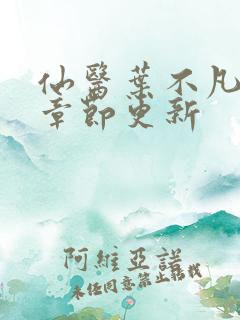 仙醫葉不凡
章節更新
阿維亞諾
未经同意禁止转载